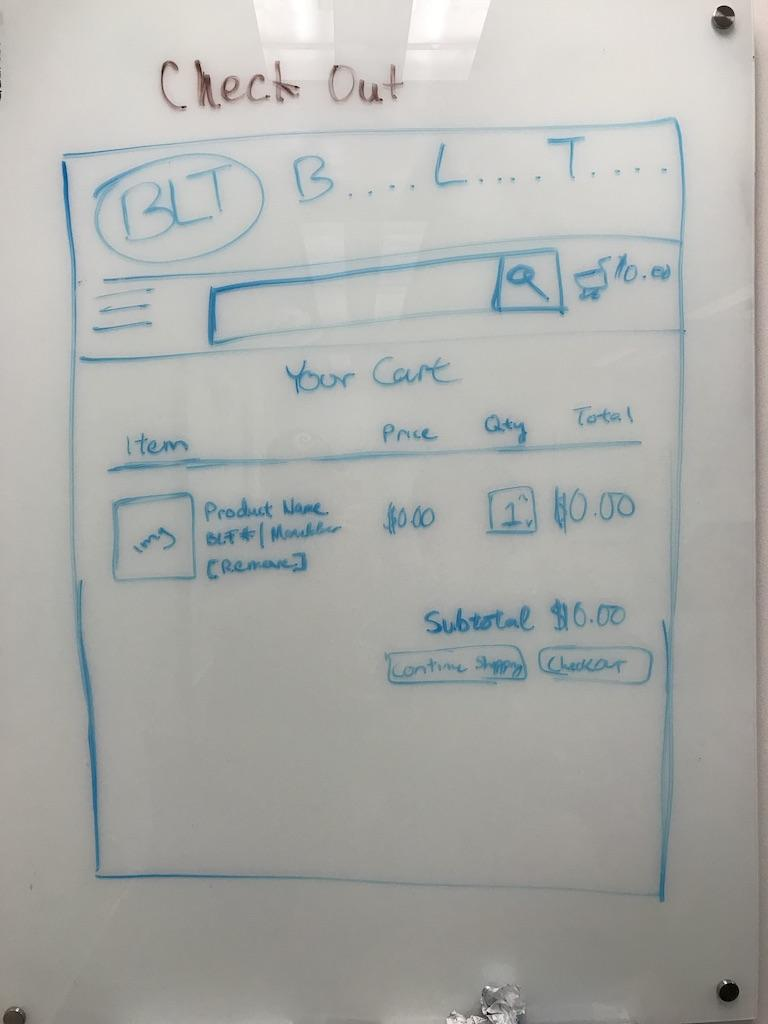 Check Out
BLT B.... L.... T....
$10.00
Your Cart
Item Price Qty Total
img Product Name $10.00 1 $10.00
BLT# |
[Remove]
Subtotal $10.00
Continue Shopping Checkout